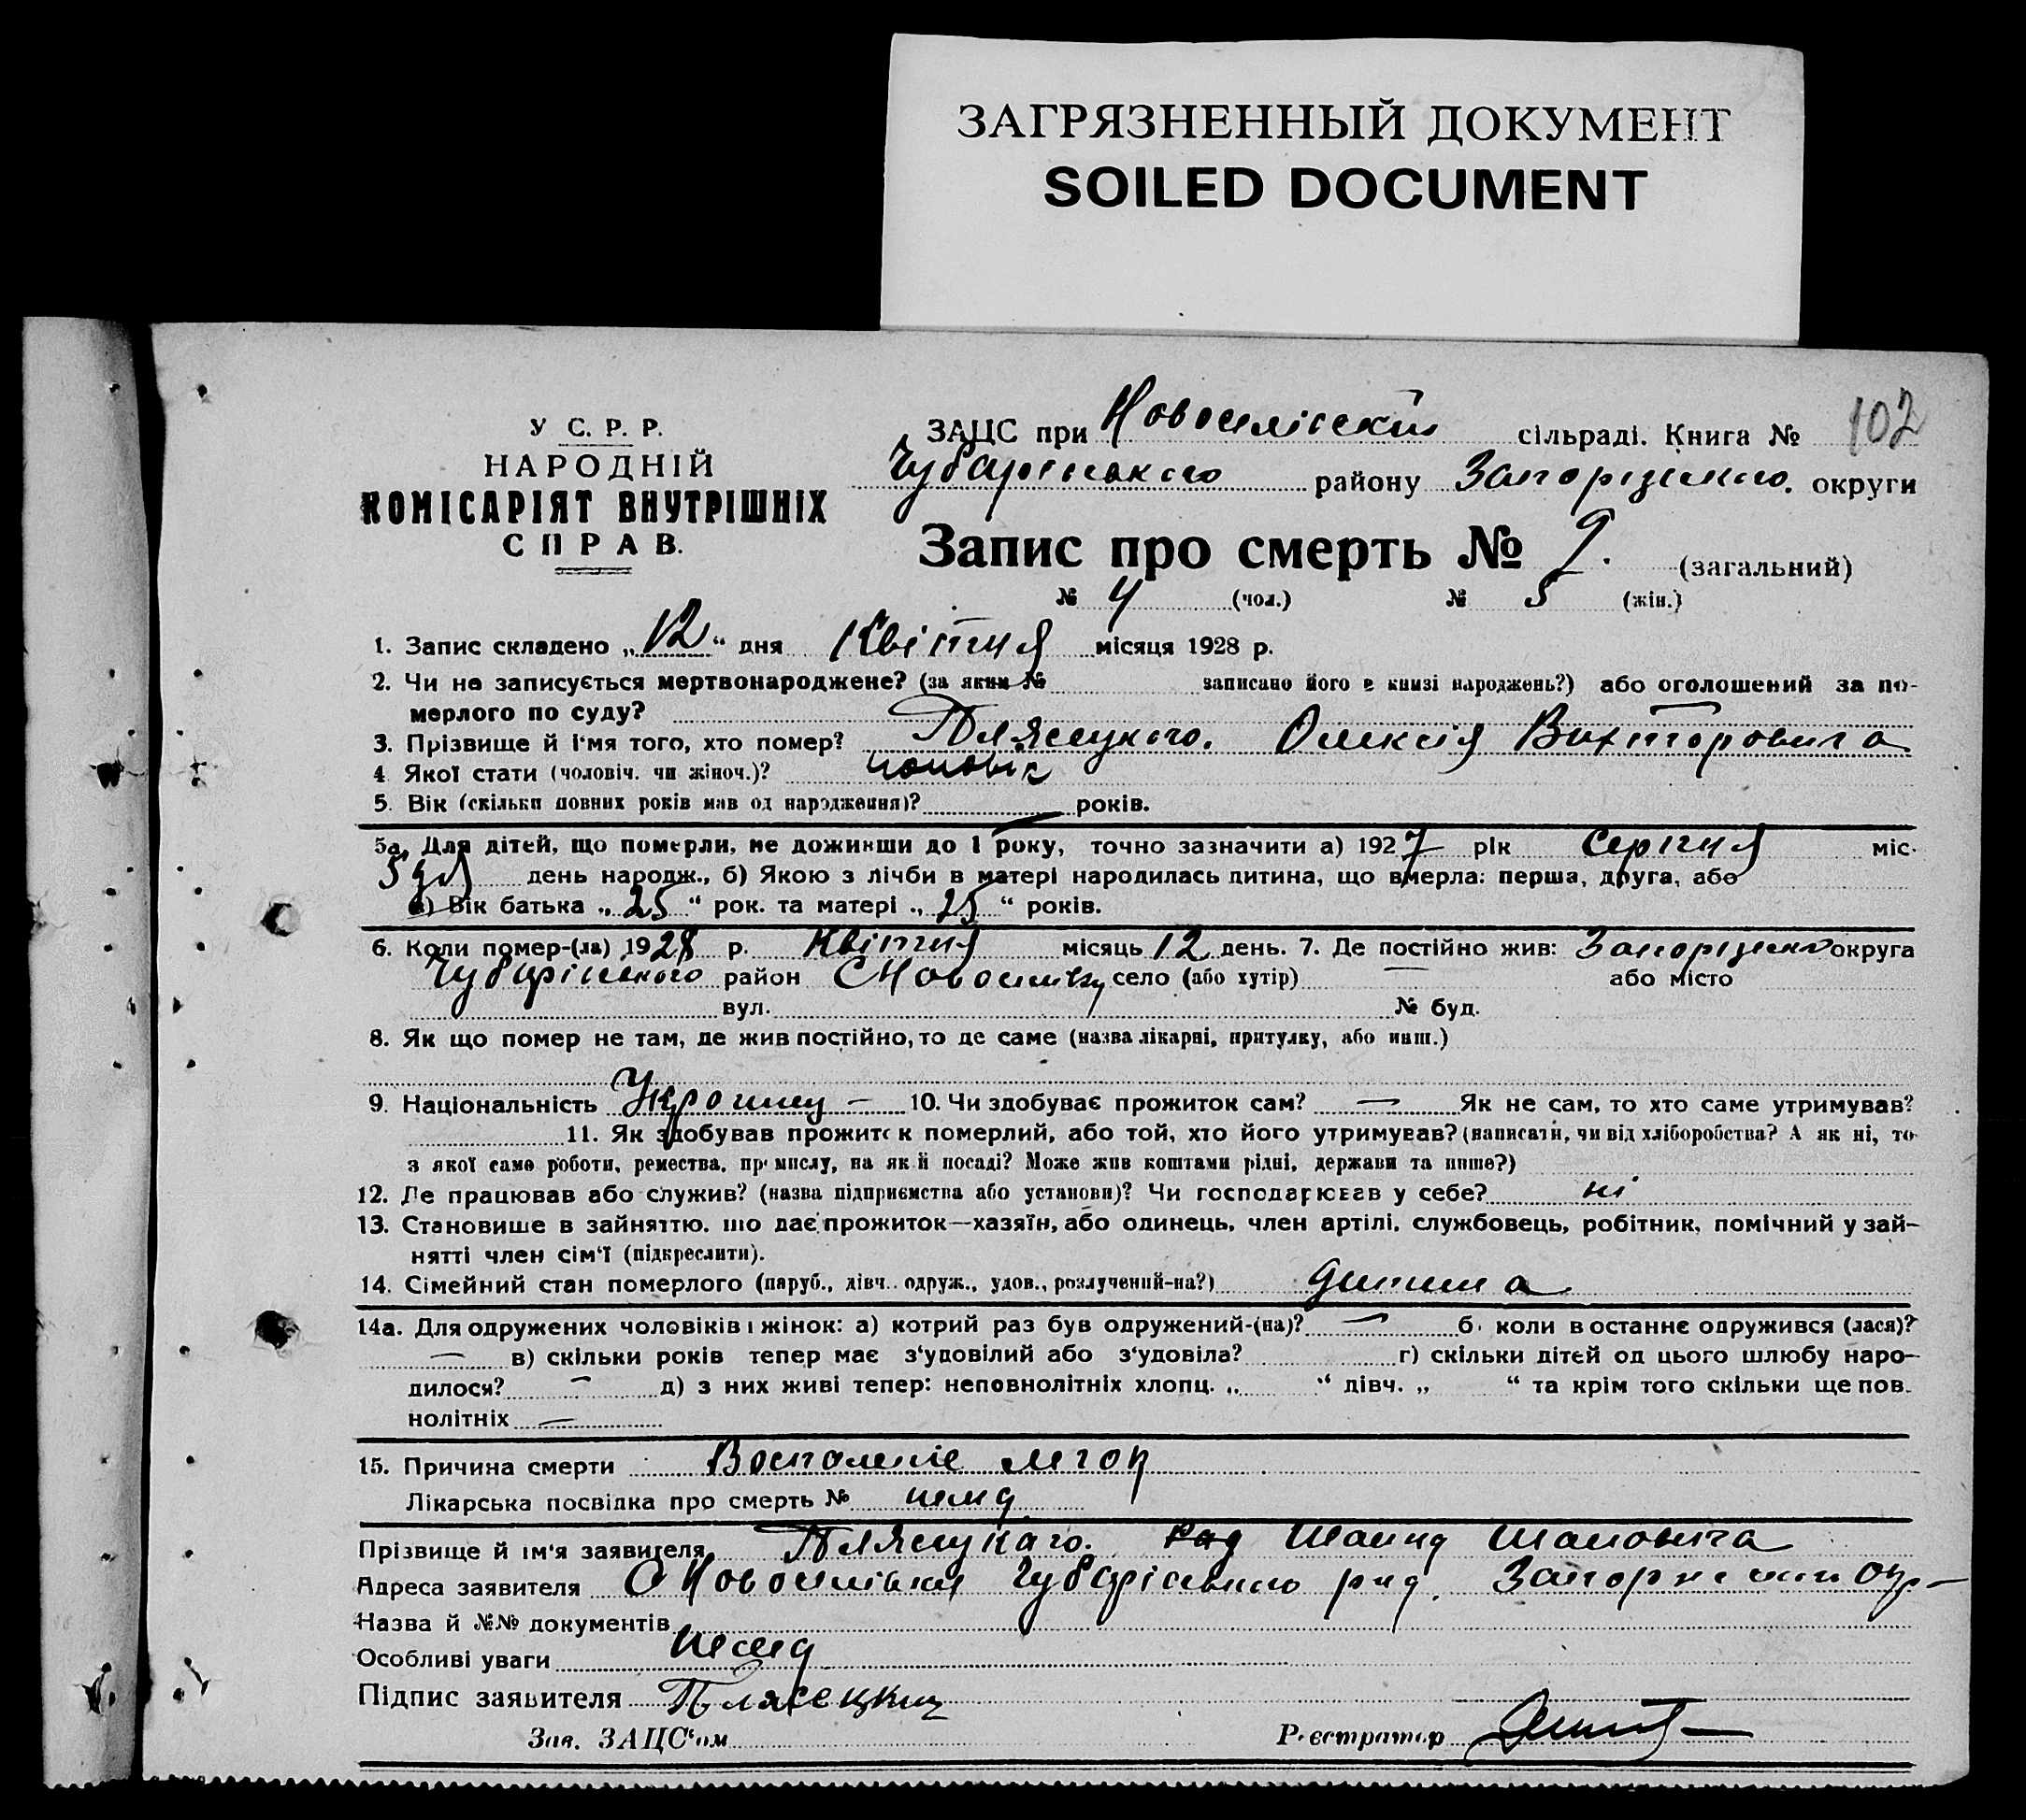 ЗАГРЯЗНЕННЫЙ ДОКУМЕНТ
SOILED DOCUMENT
102
У С. Р. Р.
НАРОДНІЙ
КОМІСАРІЯТ ВНУТРІШНІХ
СПРАВ.
ЗАЦС при Новоселівскій сільраді. Книга №
Чубарівського району Запорізького округи
Запис про смерть № 9. (загальний)
№ 4 (чол.) № 5 (жін.)
1. Запис складено „12“ дня Квітня місяця 1928 р.
2. Чи не записується мертвонароджене? (за яким № записано його в книзі народжень?) або оголошений за по-
мерлого по суду?
3. Прізвище й і‘мя того, хто помер? Олексія Вихторовича
4 Якої стати (чоловіч. чи жіноч.)? чоловік
5. Вік (скільки повних років мав од народження)? років.
5а. Для дітей, що померли, не доживши до 1 року, точно зазначити а) 1927 рік Серпня міс.
5 день народж., б) Якою з лічби в матері народилась дитина, що вмерла: перша, друга, або
в) Вік батька „25“ рок. та матері „25“ років.
6. Коли помер-(ла) 1928 р. Квітня місяць 12 день. 7. Де постійно жив: округа
Чубарівського район село (або хутір) — або місто
вул. № буд.
8. Як що помер не там, де жив постійно, то де саме (назва лікарні, притулку, або инш.)
9. Національність — 10. Чи здобуває прожиток сам? — Як не сам, то хто саме утримував?
11. Як здобував прожиток померлий, або той, хто його утримував? (написати, чи від хліборобства? А як ні, то
з якої саме роботи, ремества, промислу, на якій посаді? Може жив коштами рідні, держави та инше?)
12. Де працював або служив? (назва підприємства або установи)? Чи господарював у себе? ні
13. Становище в зайняттю, що дає прожиток—хазяїн, або одинець, член артілі, службовець, робітник, помічний у зай-
нятті член сім‘ї (підкреслити).
14. Сімейний стан померлого (паруб., дівч.. одруж., удов., розлучений-на?) дитина
14а. Для одружених чоловіків і жінок: а) котрий раз був одружений-(на)? — б. коли востаннє одружився (лася)?
— в) скільки років тепер має з‘удовілий або з‘удовіла? г) скільки дітей од цього шлюбу наро-
дилося? — д) з них живі тепер: неповнолітніх хлопц. „ “ дівч. „ “ та крім того скільки ще пов.
нолітніх —
15. Причина смерти Воспаленіе легок
Лікарська посвідка про смерть № нема
Прізвище й ім‘я заявителя
Адреса заявителя С Новоселівка Чубарівського рад. Запорізскоі окр—
Назва й №№ документів
Особливі уваги нема
Підпис заявителя Плясецкий
Зав. ЗАЦС‘ом Реєстратор